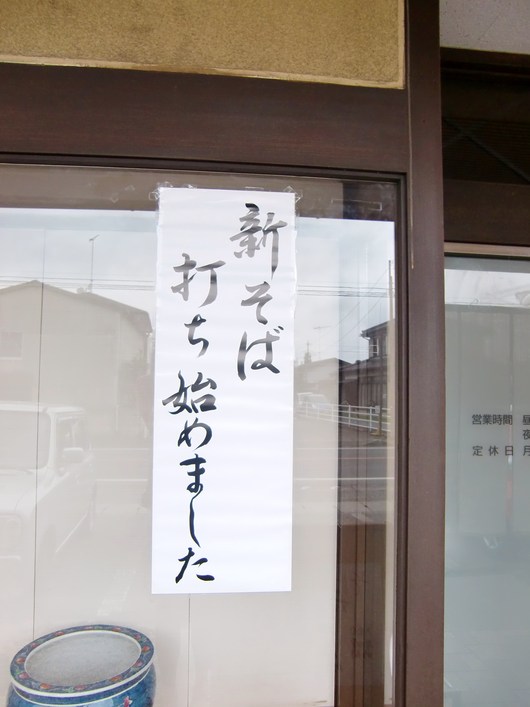 新そば
打ち始めました
営業時間 昼
夜
定休日 月